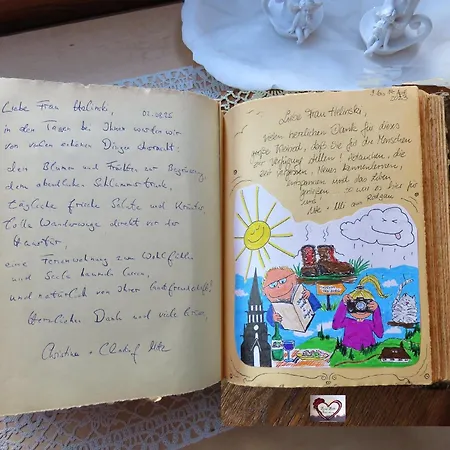 Liebe Frau Holinski, 02.08.25
in den Tagen bei Ihnen wurden wir
von vielen schönen Dingen überrascht:
den Blumen und Früchten zur Begrüssung,
dem abendlichen Schlummertrunk,
tägliche frische Salate und Kräuter,
Tolle Wanderwege direkt vor der
Haustür,
eine Ferienwohnung zum Wohlfühlen
und Seele baumeln lassen,
und natürlich von Ihrer Gastfreundschaft!
Herzlichen Dank und viele Grüsse,
Christina +
Liebe Frau Holinski,
vielen herzlichen Dank für dieses
große Kleinod, daß Sie für die Menschen
zur Verfügung stellen!
Neues kennenlernen,
und das Leben
genießen
und